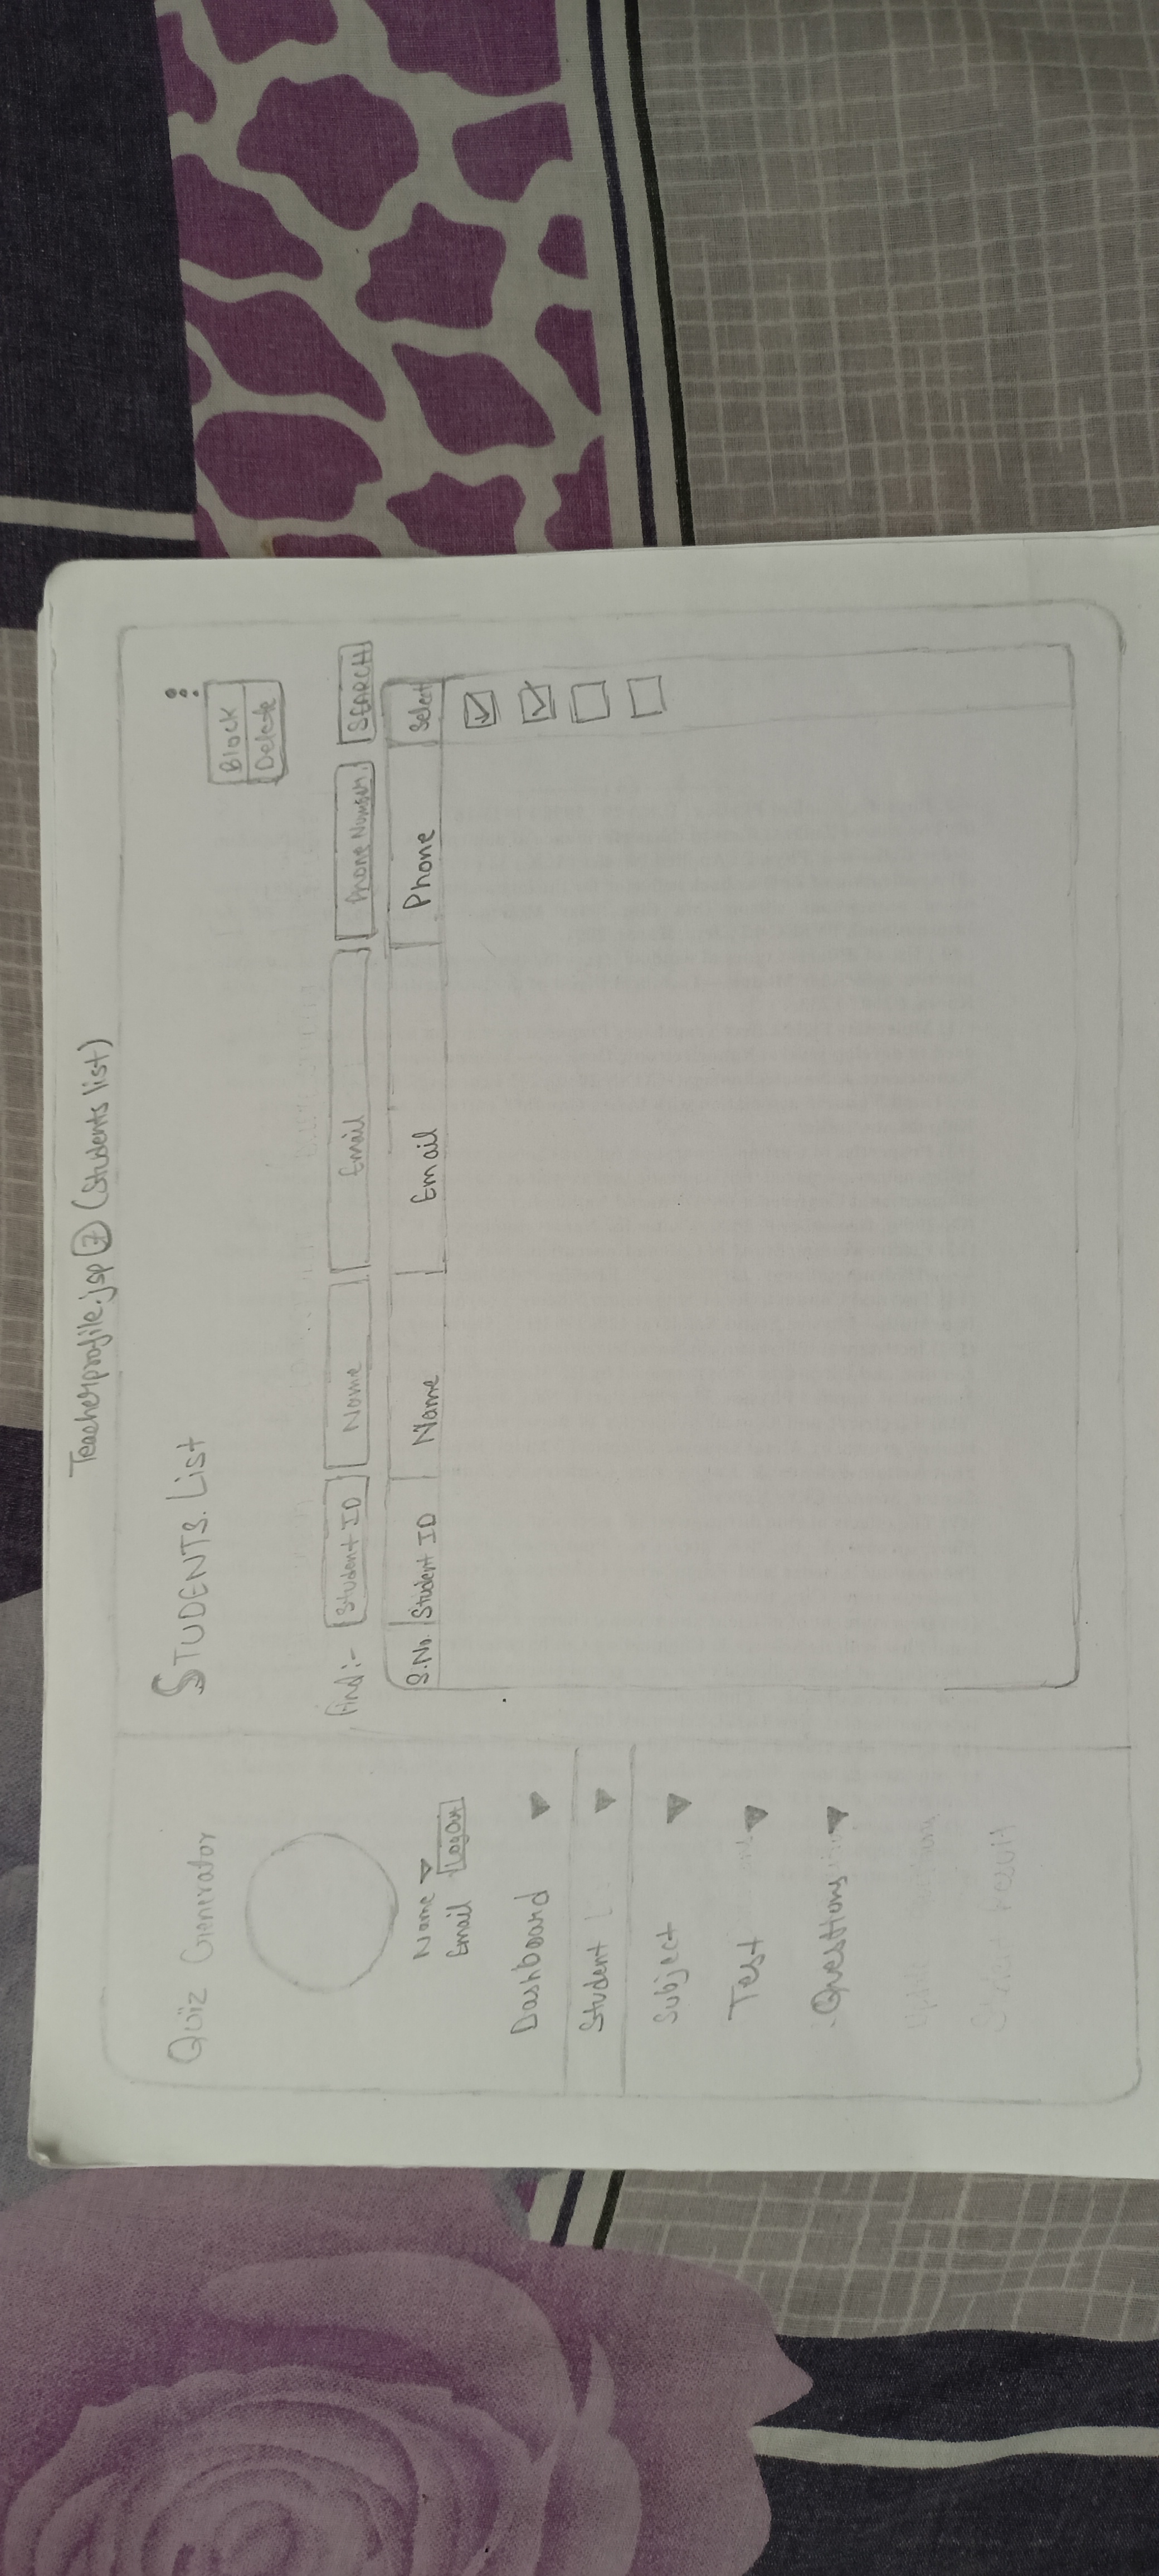 Teacherprofile.jsp 7 (Students list)
Quiz Generator
Name
Email
LogOut
Dashboard
Student
Subject
Test
Questions
STUDENTS List
Block
Delete
find:- Student ID Name Email Phone Number SEARCH
S.No. Student ID Name Email Phone Select